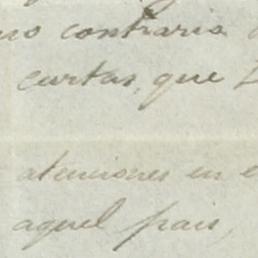 no contraria
cartas, que
atenciones en
aquel pais,